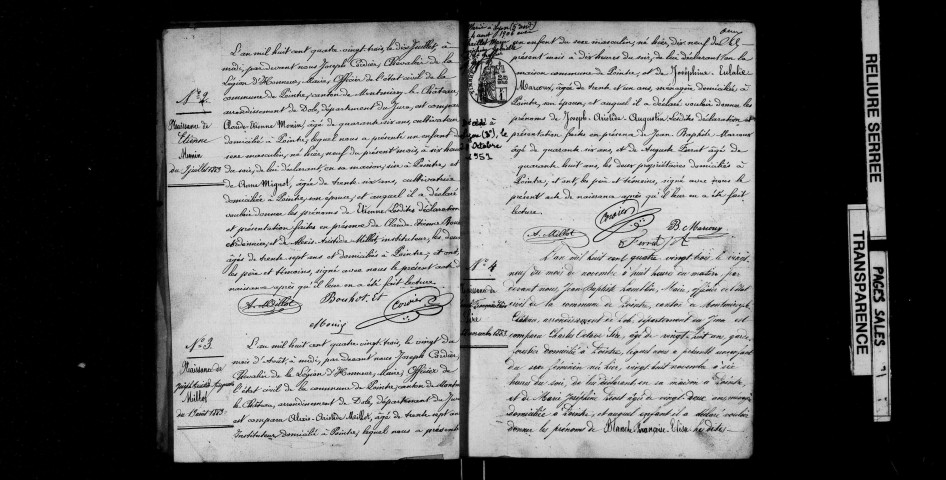 L'an mil huit cent quatre-vingt-trois, le dix Juillet, à
midi, par devant nous Joseph Cordier, Chevalier de la
Légion d'Honneur, Maire, Officier de l'état civil de la
commune de Pointre, canton de Montmirey-le-Château,
arrondissement de Dole, département du Jura, est comparu
Claude-Etienne Monin, âgé de quarante six ans, cultivateur
domicilié à Pointre, lequel nous a présenté un enfant du
sexe masculin, né hier, neuf du présent mois, à six heures
du soir, de lui déclarant, en sa maison, sise à Pointre, et
de Anne Miquet, âgée de trente six ans, cultivatrice
domiciliée à Pointre, son épouse, et auquel il a déclaré
vouloir donner les prénoms de Etienne. Lesdites déclaration
et présentation faites en présence de Claude-Etienne
et de Alexis Aristide Millot, instituteur, les deux
âgés de trente sept ans et domiciliés à Pointre; et ont,
les père et témoins, signé avec nous le présent acte de
naissance après qu'il leur en a été fait lecture.
A. Millot Bouhot. Et
Monin
N° 2.
Naissance de
Etienne
Monin
du 9 juillet 1883
N° 3.
Naissance de
Joseph Aristide Augustin
Millot
du 19 août 1883
L'an mil huit cent quatre-vingt-trois, le vingt du
mois d'Août, à midi, par devant nous Joseph Cordier,
Chevalier de la Légion d'Honneur, Maire, Officier de
l'état civil de la commune de Pointre, canton de Montmirey-
le-Château, arrondissement de Dole, département du Jura
est comparu Alexis-Aristide Millot, âgé de trente sept ans
Instituteur domicilié à Pointre, lequel nous a présenté
un enfant du sexe masculin, né hier, dix neuf du
présent mois à dix heures du soir, de lui déclarant en la
maison commune de Pointre, et de Joséphine Eulalie
Marcoux, âgée de trente et un ans, ménagère domiciliée à
Pointre, son épouse, et auquel il a déclaré vouloir donner les
prénoms de Joseph-Aristide-Augustin. Lesdites déclaration et
présentation faites en présence de Jean-Baptiste Marcoux
âgé de quarante six ans, et de Auguste Ferrat âgé de
quarante huit ans, les deux propriétaires domiciliés à
Pointre; et ont, les père et témoins, signé avec nous le
présent acte de naissance après qu'il leur en a été fait
lecture.
A. Millot B. Marcoux
Ferrat A
N° 4
L'an mil huit cent quatre vingt trois le vingt
neuf du mois de novembre à neuf heures du matin par
devant nous, Jean Baptiste
civil de la commune de Pointre, canton de Montmirey le
Château, arrondissement de Dole, département du Jura est
comparu Charles âgé de vingt huit ans
domicilié à Pointre, lequel nous a présenté un enfant
du sexe féminin né hier, vingt huit novembre à dix
heures du soir, de lui déclarant en sa maison à Pointre,
et de Marie Joséphine âgée de vingt deux ans
domiciliée à Pointre, et auquel enfant il a déclaré vouloir
donner les prénoms de Blanche Françoise Elise
RELIURE SERREE
TRANSPARENCE
PAGES SALES